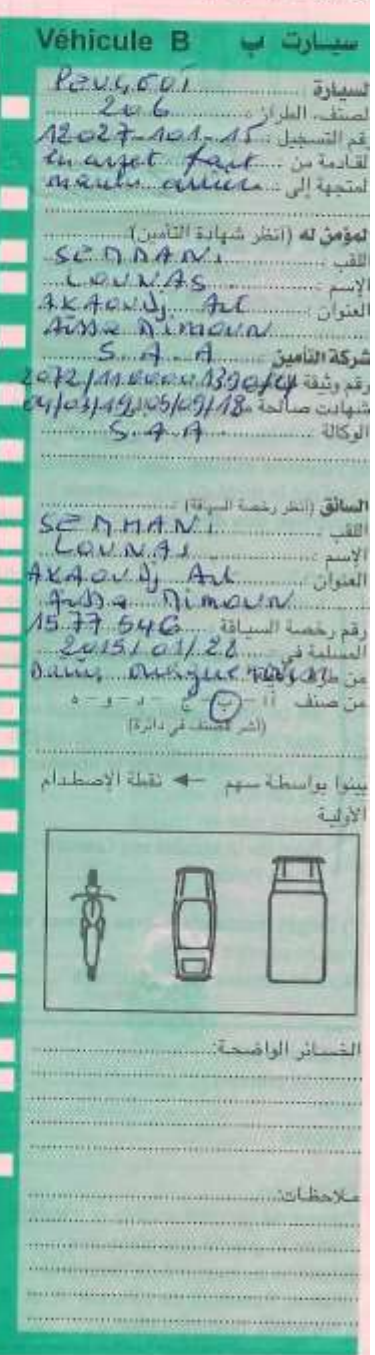 Véhicule B سيارت ب
لسيارة Peugeot
لصنف، الطراز 206
قم التسجيل 12027-101-15
لقادمة من
لمتجهة إلى
لمؤمن له (انظر شهادة التأمين)
اللقب SEMMANI
الإسم LOUNAS
العنوان AKAOUDj Ait
Aissa Mimoun
شركة التأمين S.A.A
رقم وثيقة
شهادت صالحة 04/03/19 05/09/18
الوكالة S.A.A
السائق (أنظر رخصة السياقة)
اللقب SEMMANI
الاسم LOUNAS
العنوان AKAOUDj Ait
Aissa Mimoun
رقم رخصة السياقة 1577546
المسلمة في 2015/01/28
من طرف ولاية Daira
من صنف أ ا - ب - ج - د - و - ه
(أشر الصنف في دائرة)
بينوا بواسطة سهم ← نقطة الإصطدام
الأولية
الخسائر الواضحة:
ملاحظات: